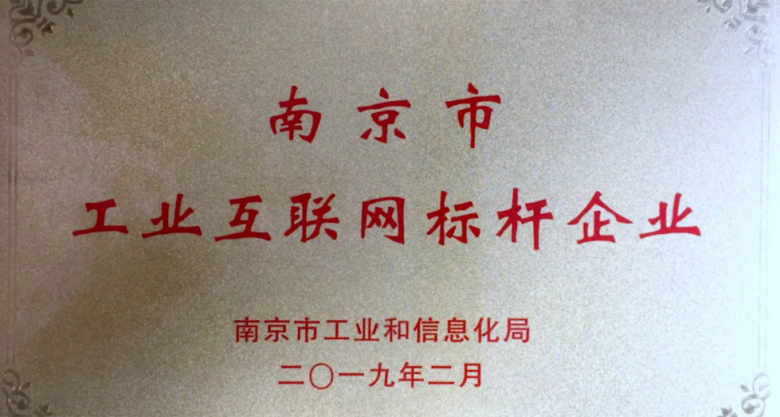 南京市
工业互联网标杆企业
南京市工业和信息化局
二〇一九年二月